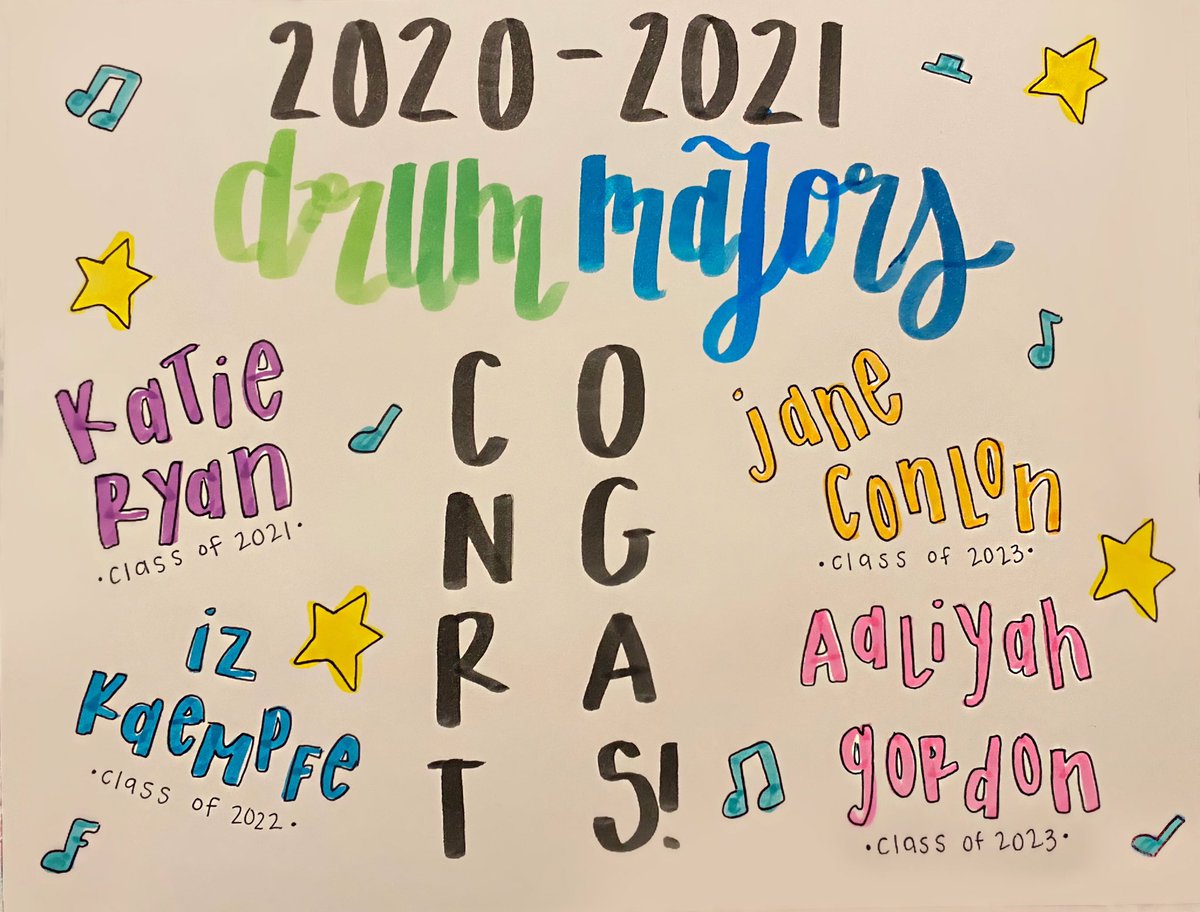 2020-2021
drum majors
Katie
Ryan
•class of 2021•
iz
Kaempfe
•class of 2022•
C O
N G
R A
T S!
jane
Conlon
•class of 2023•
Aaliyah
gordon
•class of 2023•